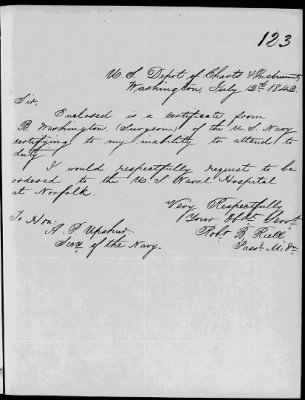 123
U. S. Depot of Charts & Instruments
Washington, July 12th 1842.
Sir,
Enclosed is a certificate from
B. Washington (Surgeon) of the U. S. Navy
certifying to my inability to attend to
duty.
I would respectfully request to be
ordered to the U. S. Naval Hospital
at Norfolk.
Very Respectfully
Your Obt. Servt.
Robt. B. Riell
Passd. Midn.
To Hon.
A. P. Upshur
Secy of the Navy.